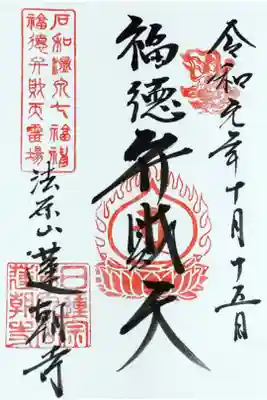 令和元年十月十五日
福徳弁財天
石和温泉七福神
福徳弁財天霊場
法石山蓮朝寺
日蓮宗
蓮朝寺